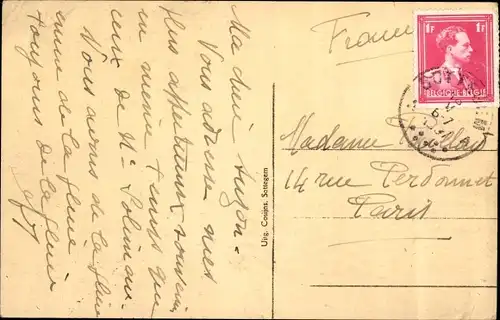 Ma chère Suzon -
Vous adresse mes
plus affectueux souvenirs
en même temps que
ceux de Mr
Nous avons de la pluie
amène de la pluie
toujours de la pluie
Uitg. Cooijns, Sottegem
France
1F 1F
BELGIQUE BELGIË
Madame
14 rue Perdonnet
Paris